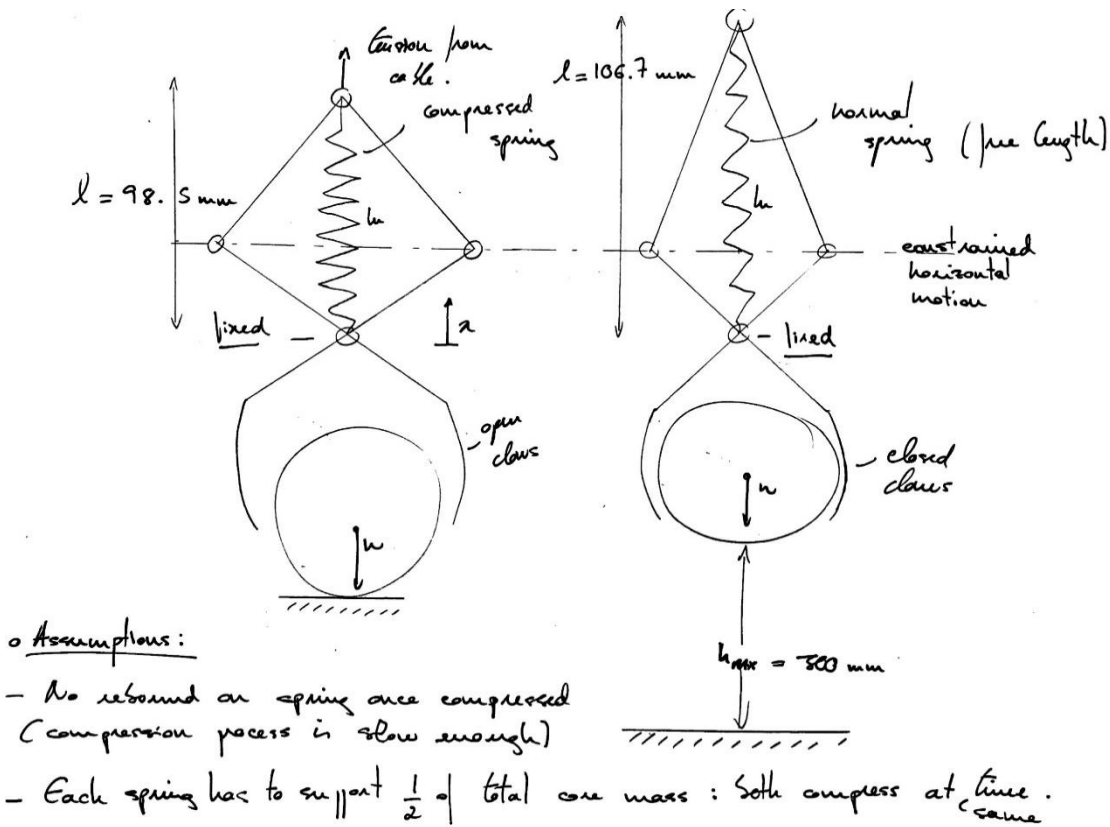 tension from
cable.
compressed
spring
l = 98.5 mm
k
fixed
x
open
claws
w
l = 106.7 mm
normal
spring (free length)
k
constrained
horizontal
motion
fixed
closed
claws
w
h max = 300 mm
o Assumptions:
- No rebound on spring once compressed
(compression process is slow enough)
- Each spring has to support 1/2 of total core mass : both compress at same time.